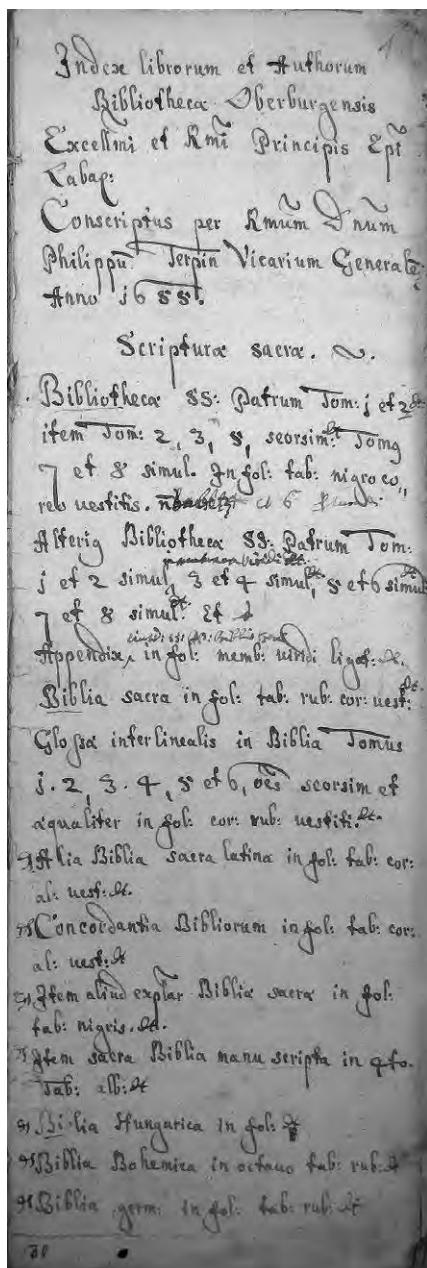 Index librorum et Authorum
Bibliothecæ Oberburgensis
Excellmi et Rmi Principis Epi
Labac:
Conscriptus per Rmum Dnum
Philippũ Terpin Vicarium Generalẽ
Anno j688.
Scripturæ sacræ.
Bibliotheca SS: Patrum Tom: j et 2
item Tom: 2, 3, 5, seorsim: Tomg
7 et 8 simul. In fol: tab: nigro co„
reo vestitis. et 6
Alterig Bibliotheca SS: Patrum Tom:
j et 2 simul, 3 et 4 simul, 5 et 6 simul
7 et 8 simul: Et
Appendix, in fol: memb: viridi ligat: &.
Biblia sacra in fol: tab: rub: cor: vest: &.
Glossa interlinealis in Biblia Tomus
j. 2, 3. 4, 5 et 6, oẽs seorsim et
æqualiter in fol: cor: rub: vestiti. &.
Alia Biblia sacra latina in fol: tab: cor:
al: vest: &.
Concordantia Bibliorum in fol: tab: cor:
al: vest: &
Item aliud explar Bibliæ sacræ in fol:
tab: nigris. &.
Item sacra Biblia manu scripta in 4to.
Tab: alb: &
Biblia Hungarica in fol: &
Biblia Bohemica in octavo tab: rub: &
Biblia germ: in fol: tab: rub: &